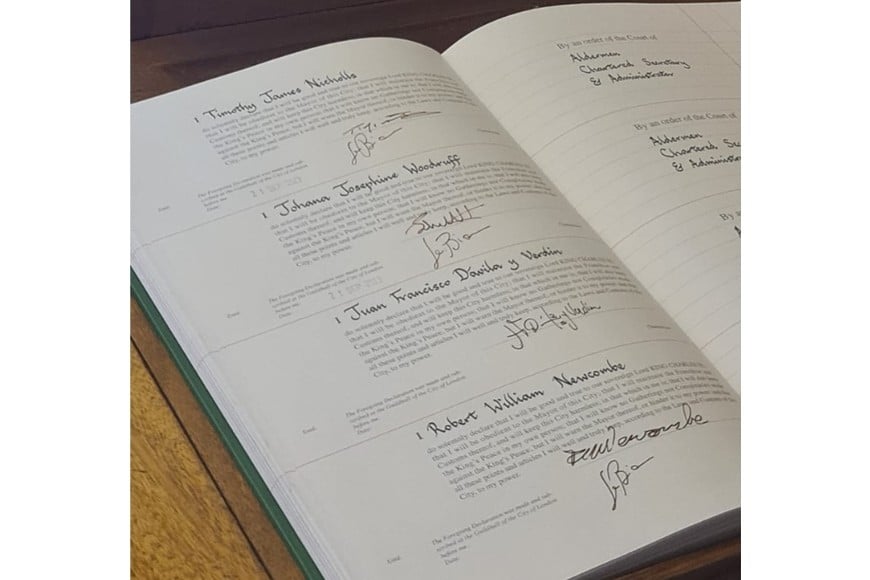 I Timothy James Nicholls
do solemnly declare that I will be good and true to our sovereign Lord KING CHARLES
that I will be obedient to the Mayor of this City; that I will maintain the
Customs thereof, and will keep this City harmless, in that which in me is; that I will
the King's Peace in my own person; that I will know no Gatherings nor
against the King's Peace, but I will warn the Mayor thereof, or hinder it to my
all these points and articles I will well and truly keep, according to the Laws
City, to my power.
The Foregoing Declaration was made and sub-
scribed at the Guildhall of the City of London
before me
Date: 21 SEP 2023
I Johana Josephine Woodruff
do solemnly declare that I will be good and true to our sovereign Lord KING
that I will be obedient to the Mayor of this City; that I will maintain the
Customs thereof, and will keep this City harmless, in that which in me is; that I will
the King's Peace in my own person; that I will know no Gatherings nor
against the King's Peace, but I will warn the Mayor thereof, or hinder it to my
all these points and articles I will well and truly keep, according to the Laws and Customs
City, to my power.
The Foregoing Declaration was made and sub-
scribed at the Guildhall of the City of London
before me
Date: 21 SEP 2023
I Juan Francisco Dávila y Verdin
do solemnly declare that I will be good and true to our sovereign Lord KING CHARLES
that I will be obedient to the Mayor of this City; that I will maintain the Franchises and
Customs thereof, and will keep this City harmless, in that which in me is; that I will also
the King's Peace in my own person; that I will know no Gatherings nor Conspiracies
against the King's Peace, but I will warn the Mayor thereof, or hinder it to my power; and
all these points and articles I will well and truly keep, according to the Laws and Customs of
City, to my power.
The Foregoing Declaration was made and sub-
scribed at the Guildhall of the City of London
before me
Date:
I Robert William Newcombe
do solemnly declare that I will be good and true to our sovereign Lord KING CHARLES
that I will be obedient to the Mayor of this City; that I will maintain the Franchises and
Customs thereof, and will keep this City harmless, in that which in me is; that I will also
the King's Peace in my own person; that I will know no Gatherings nor Conspiracies made
against the King's Peace, but I will warn the Mayor thereof, or hinder it to my power; and
all these points and articles I will well and truly keep, according to the Laws and Customs of
City, to my power.
The Foregoing Declaration was made and sub-
scribed at the Guildhall of the City of London
before me
Date:
By an order of the Court of
Aldermen
Chartered Secretary
& Administrator
By an order of the Court of
Aldermen
Chartered Se
& Administra
By a